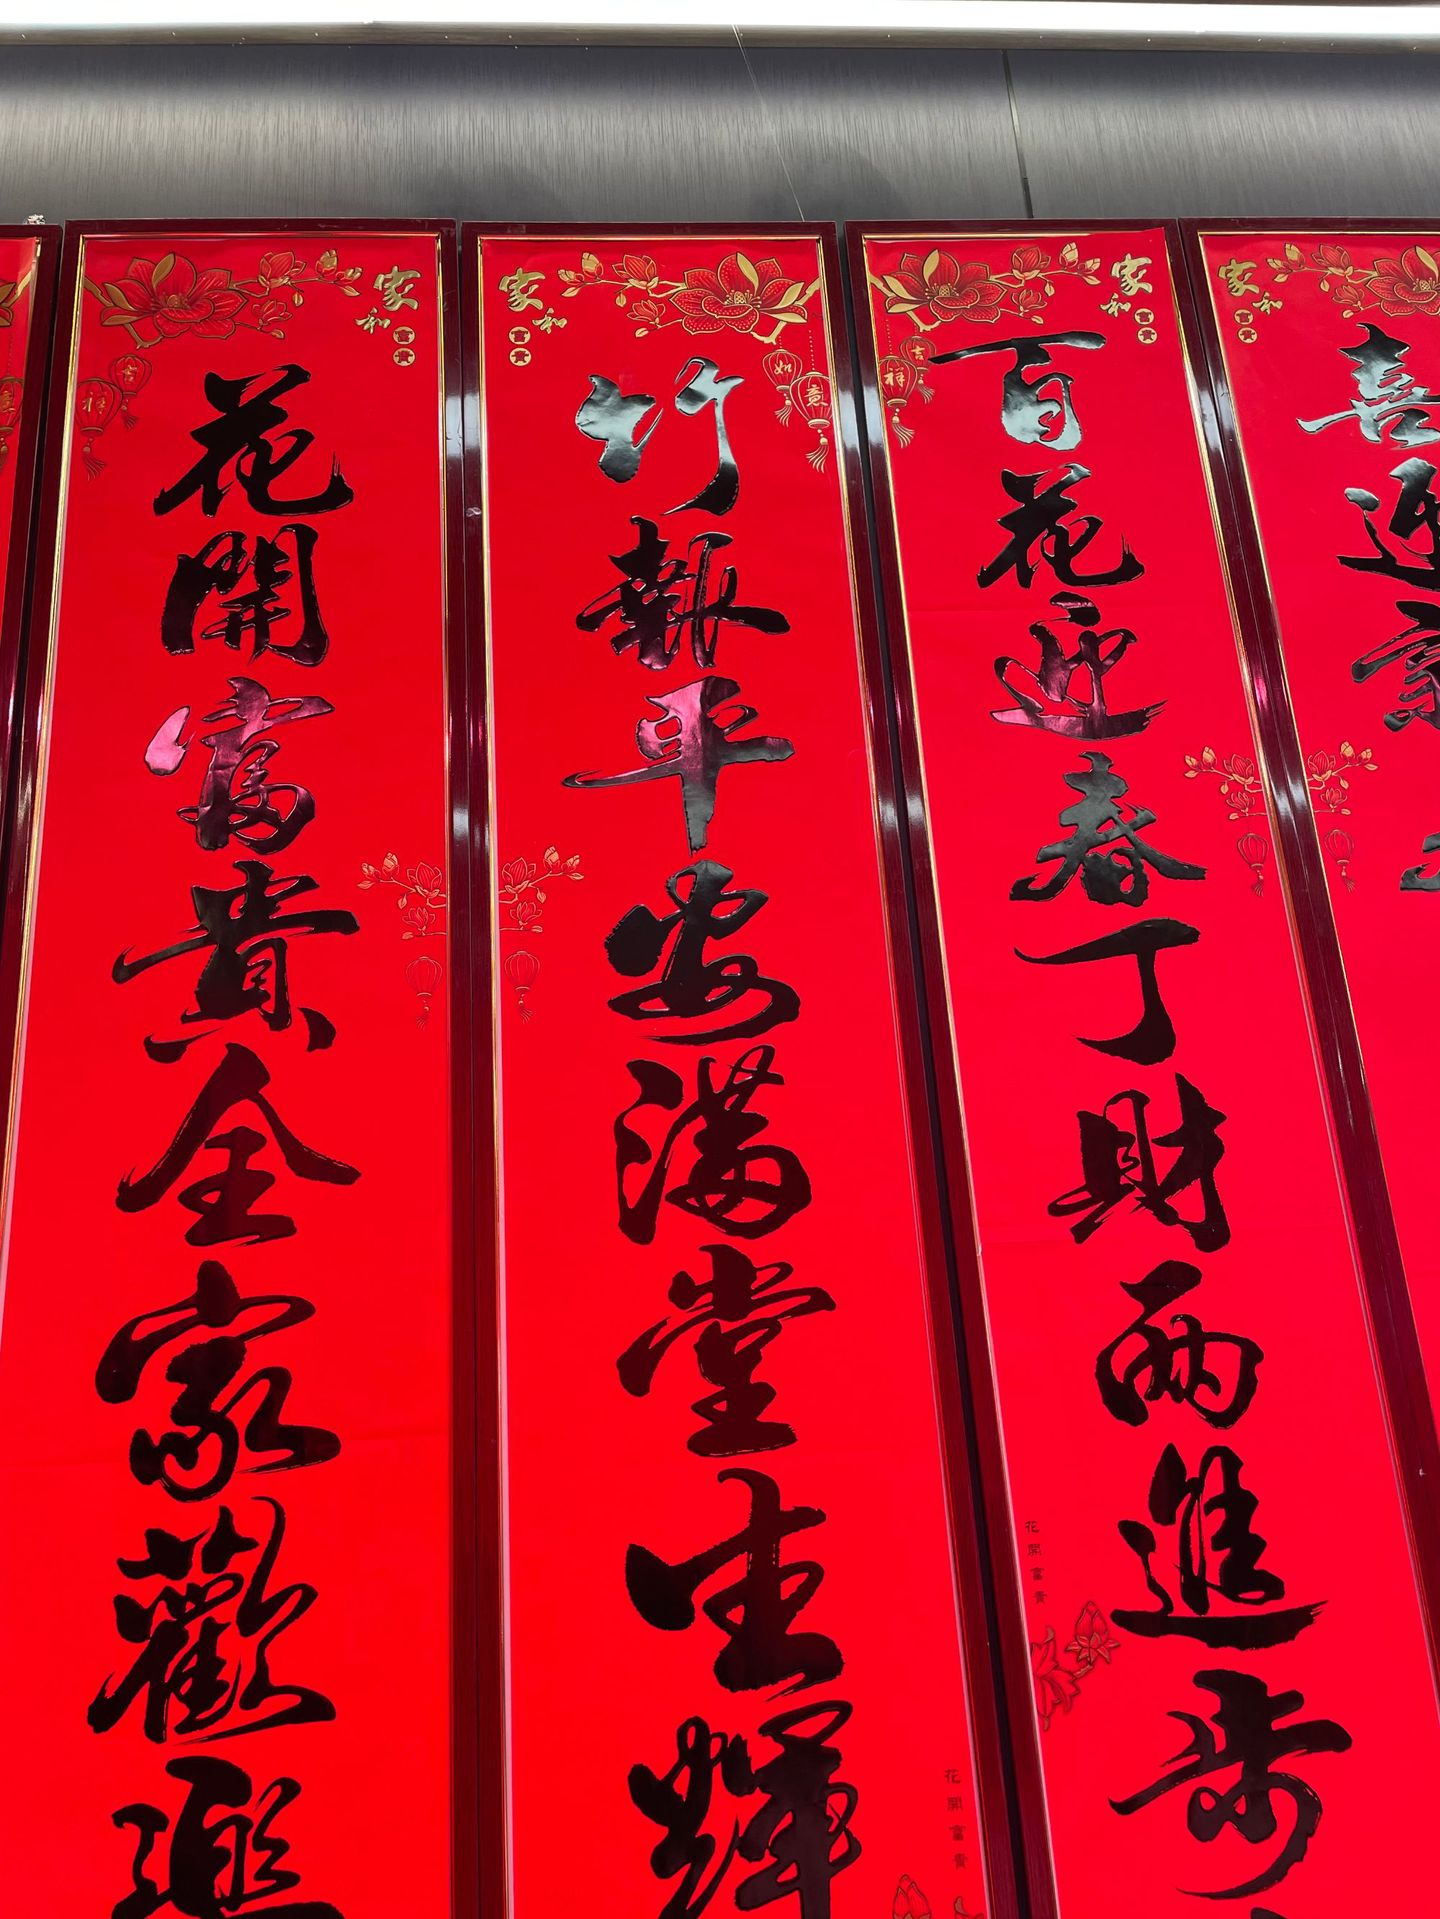 家和
富貴
吉祥
花開富貴全家歡樂
家和
富貴
如意
竹報平安滿堂生輝
家和
富貴
吉祥
百花迎春丁財兩進步
家和
富貴
喜迎
花開富貴
花開富貴